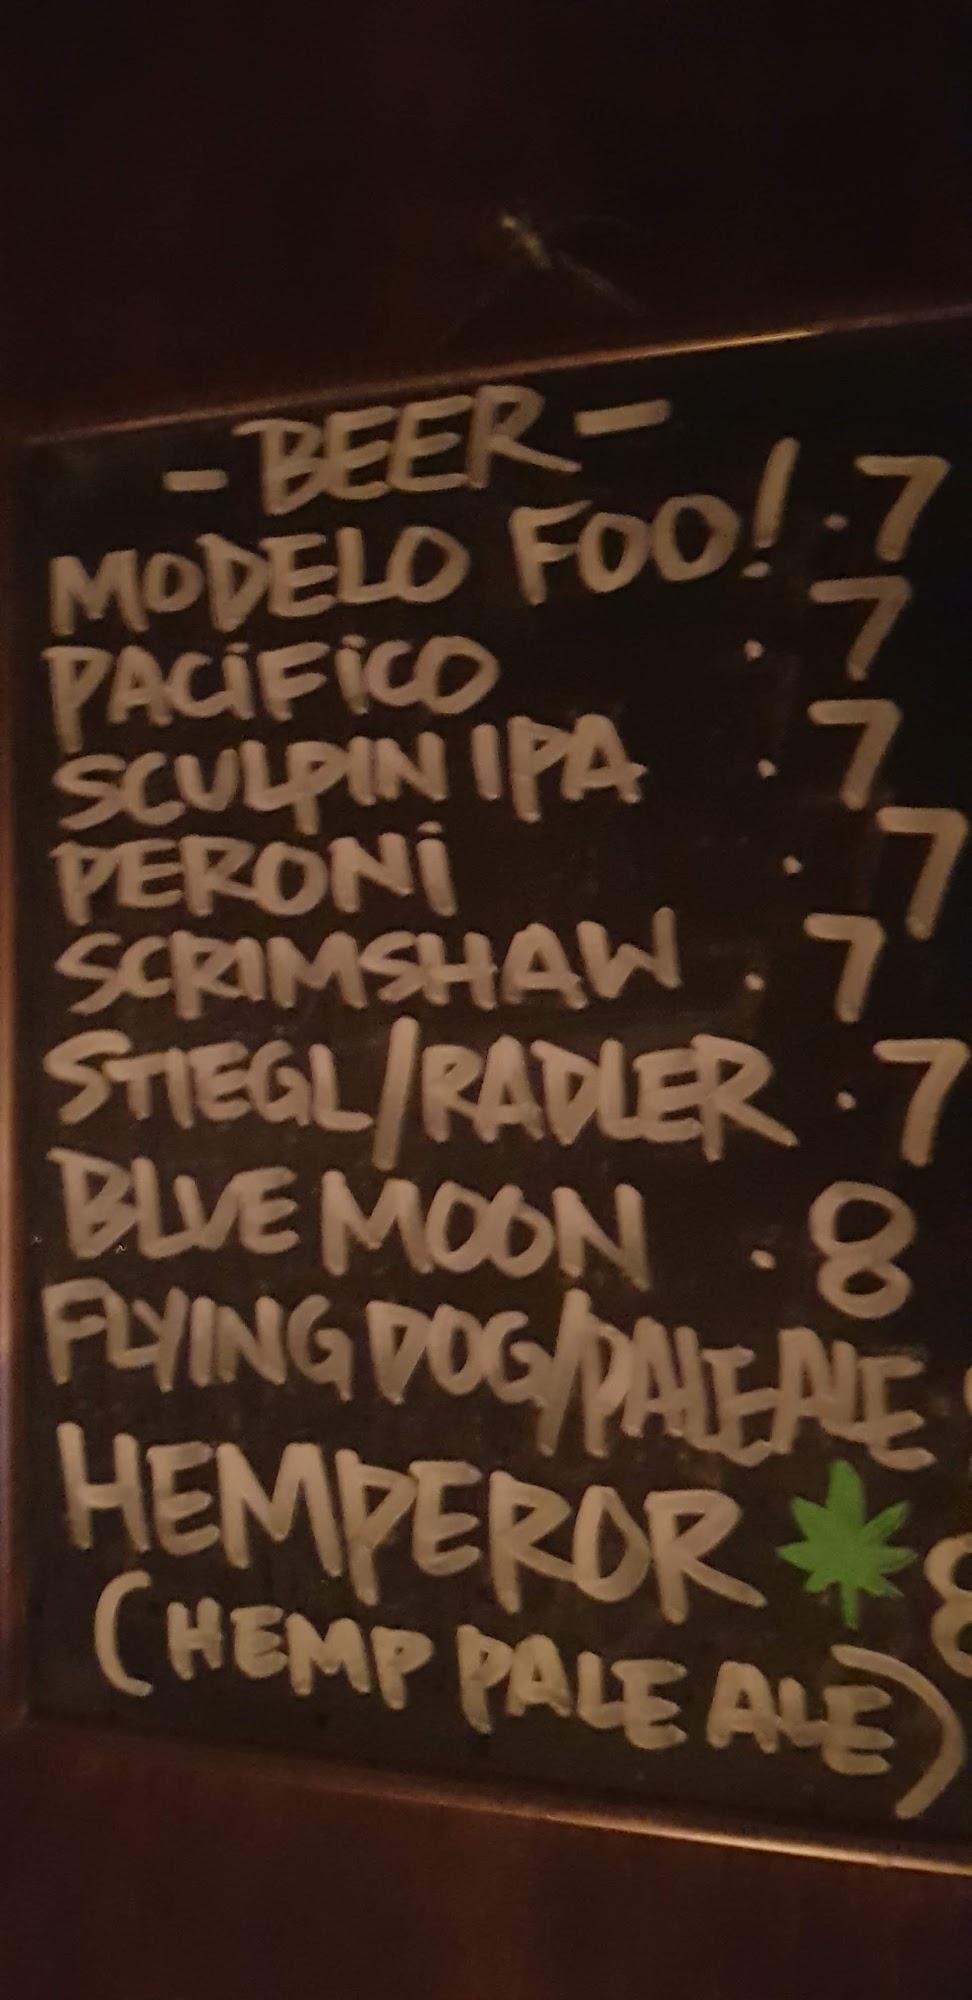 - BEER -
MODELO FOO! . 7
PACIFICO . 7
SCULPIN IPA . 7
PERONI . 7
SCRIMSHAW . 7
STIEGL/RADLER . 7
BLUE MOON . 8
FLYING DOG/PALE ALE
HEMPEROR 8
(HEMP PALE ALE)